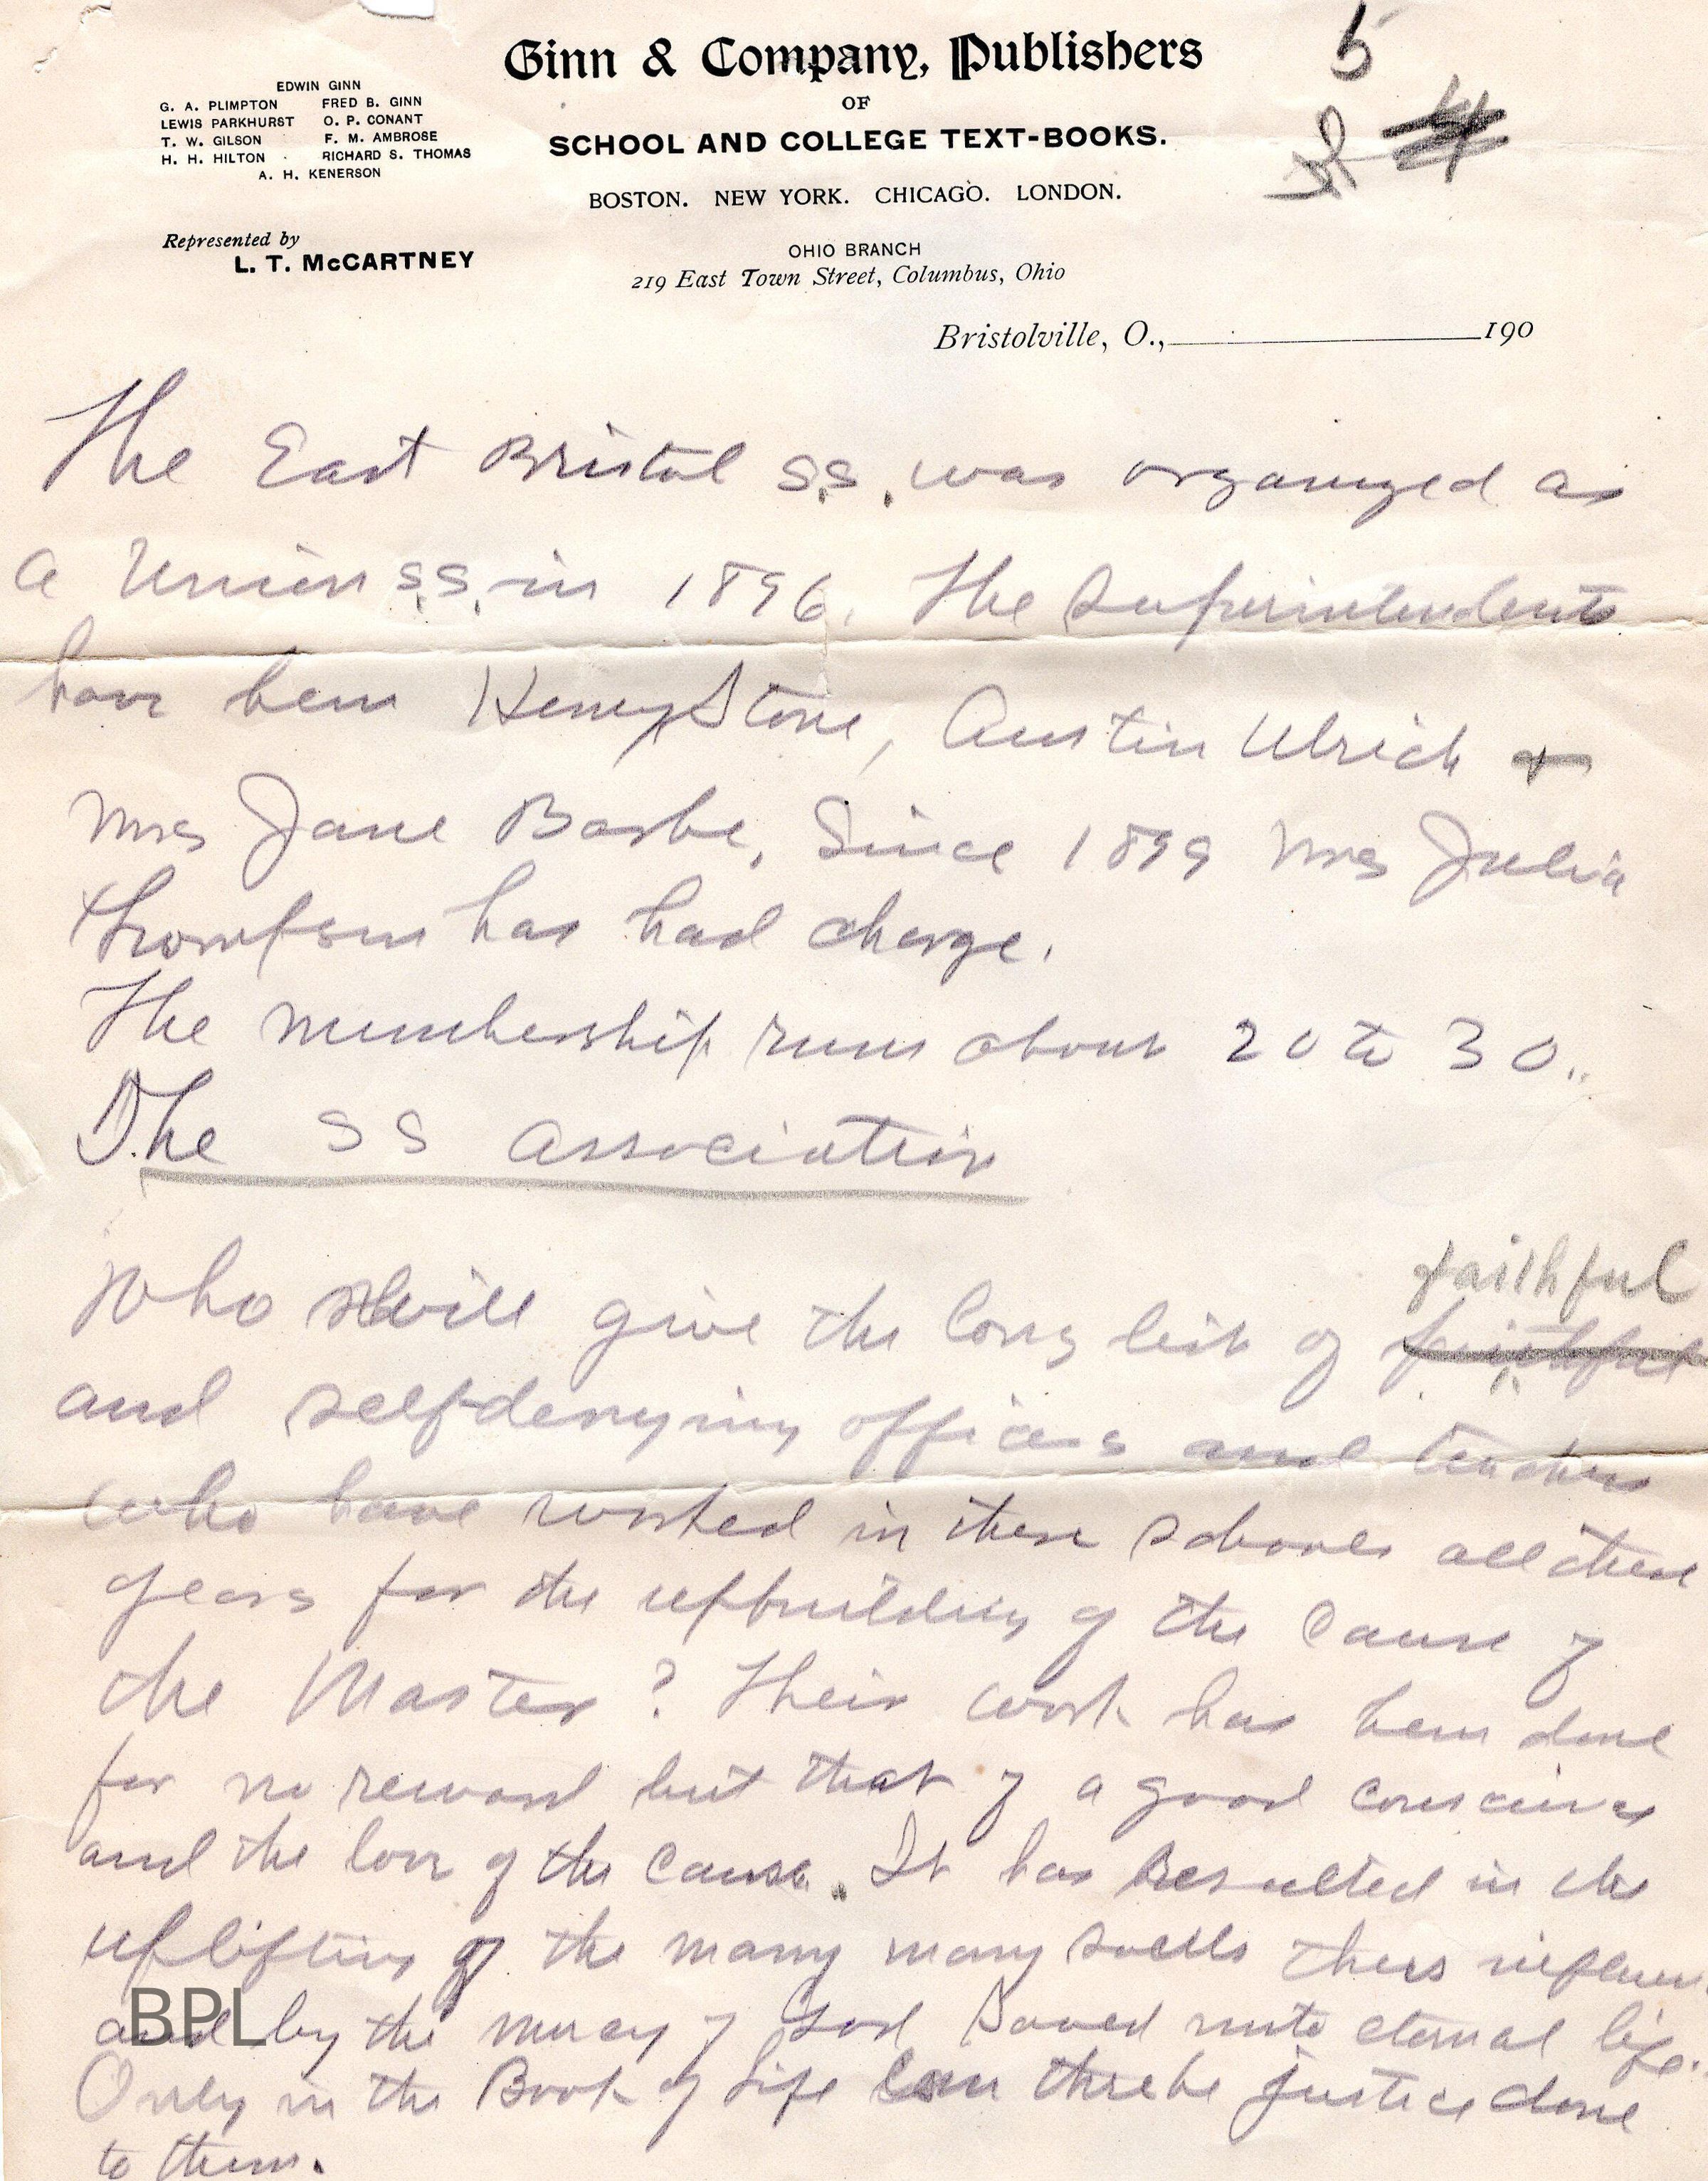 Ginn & Company, Publishers
OF
SCHOOL AND COLLEGE TEXT-BOOKS.
BOSTON. NEW YORK. CHICAGO. LONDON.
OHIO BRANCH
219 East Town Street, Columbus, Ohio
EDWIN GINN
G. A. PLIMPTON FRED B. GINN
LEWIS PARKHURST O. P. CONANT
T. W. GILSON F. M. AMBROSE
H. H. HILTON RICHARD S. THOMAS
A. H. KENERSON
Represented by
L. T. McCARTNEY
5
Bristolville, O., 190
The East Bristol S.S. was organized as
a Union S.S. in 1896. The Superintendents
have been Henry Stone, Austin Ulrich &
Mrs Jane Barbe, Since 1899 Mrs Julia
Thompson has had charge.
The membership runs about 20 to 30..
The SS Association
Who will give the long list of faithful
and self-denying officers and teachers
who have worked in these schools all these
years for the upbuilding of the Cause of
the Master? Their work has been done
for no reward but that of a good conscience
and the love of the Cause. It has resulted in the
uplifting of the many many souls
and by the mercy of God Saved unto eternal life.
Only in the Book of Life can there be justice done
to them.
BPL